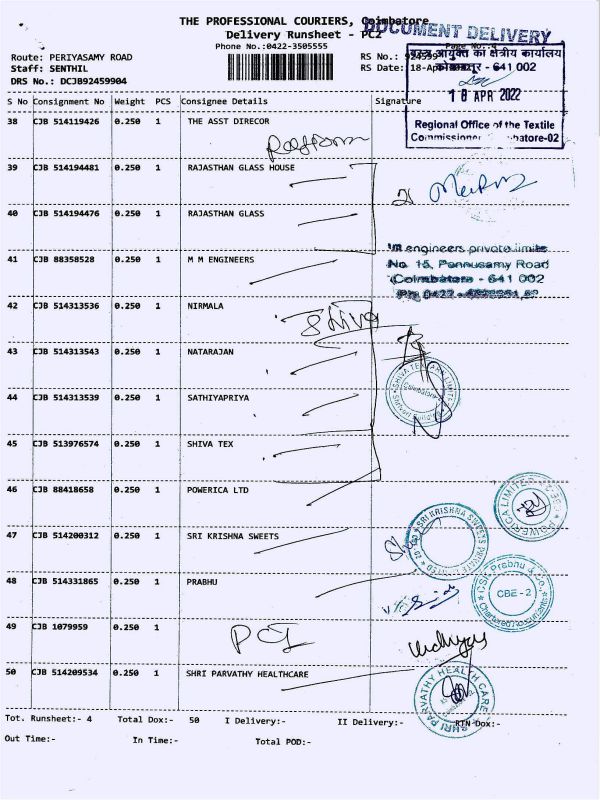 THE PROFESSIONAL COURIERS, Coimbatore
Delivery Runsheet - PCZ
Phone No.:0422-3505555
DOCUMENT DELIVERY
Route: PERIYASAMY ROAD
Staff: SENTHIL
DRS No.: DCJB92459904
RS No.:
RS Date: 18-Ap
Page No.:4
वस्त्र आयुक्त का क्षेत्रीय कार्यालय
कोयम्बतूर - 641 002
18 APR 2022
Regional Office of the Textile
Commissioner, batore-02
S No Consignment No Weight PCS Consignee Details Signature
38 CJB 514119426 0.250 1 THE ASST DIRECOR
39 CJB 514194481 0.250 1 RAJASTHAN GLASS HOUSE
40 CJB 514194476 0.250 1 RAJASTHAN GLASS
41 CJB 88358528 0.250 1 M M ENGINEERS
engineers private limite
No. 15, Pannusamy Road
Coimbatore - 641 002
42 CJB 514313536 0.250 1 NIRMALA
Shiva
43 CJB 514313543 0.250 1 NATARAJAN
44 CJB 514313539 0.250 1 SATHIYAPRIYA
45 CJB 513976574 0.250 1 SHIVA TEX
46 CJB 88418658 0.250 1 POWERICA LTD
POWERICA LIMITED
47 CJB 514200312 0.250 1 SRI KRISHNA SWEETS
SRI KRISHNA SWEETS PRIVATE LIMITED
48 CJB 514331865 0.250 1 PRABHU
CSK Prabhu & Co.
CBE - 2
Chartered Accountants
49 CJB 1079959 0.250 1
PCI
50 CJB 514209534 0.250 1 SHRI PARVATHY HEALTHCARE
SHRI PARVATHY HEALTH CARE
Tot. Runsheet:- 4 Total Dox:- 50 I Delivery:- II Delivery:- RTN Dox:-
Out Time:- In Time:- Total POD:-